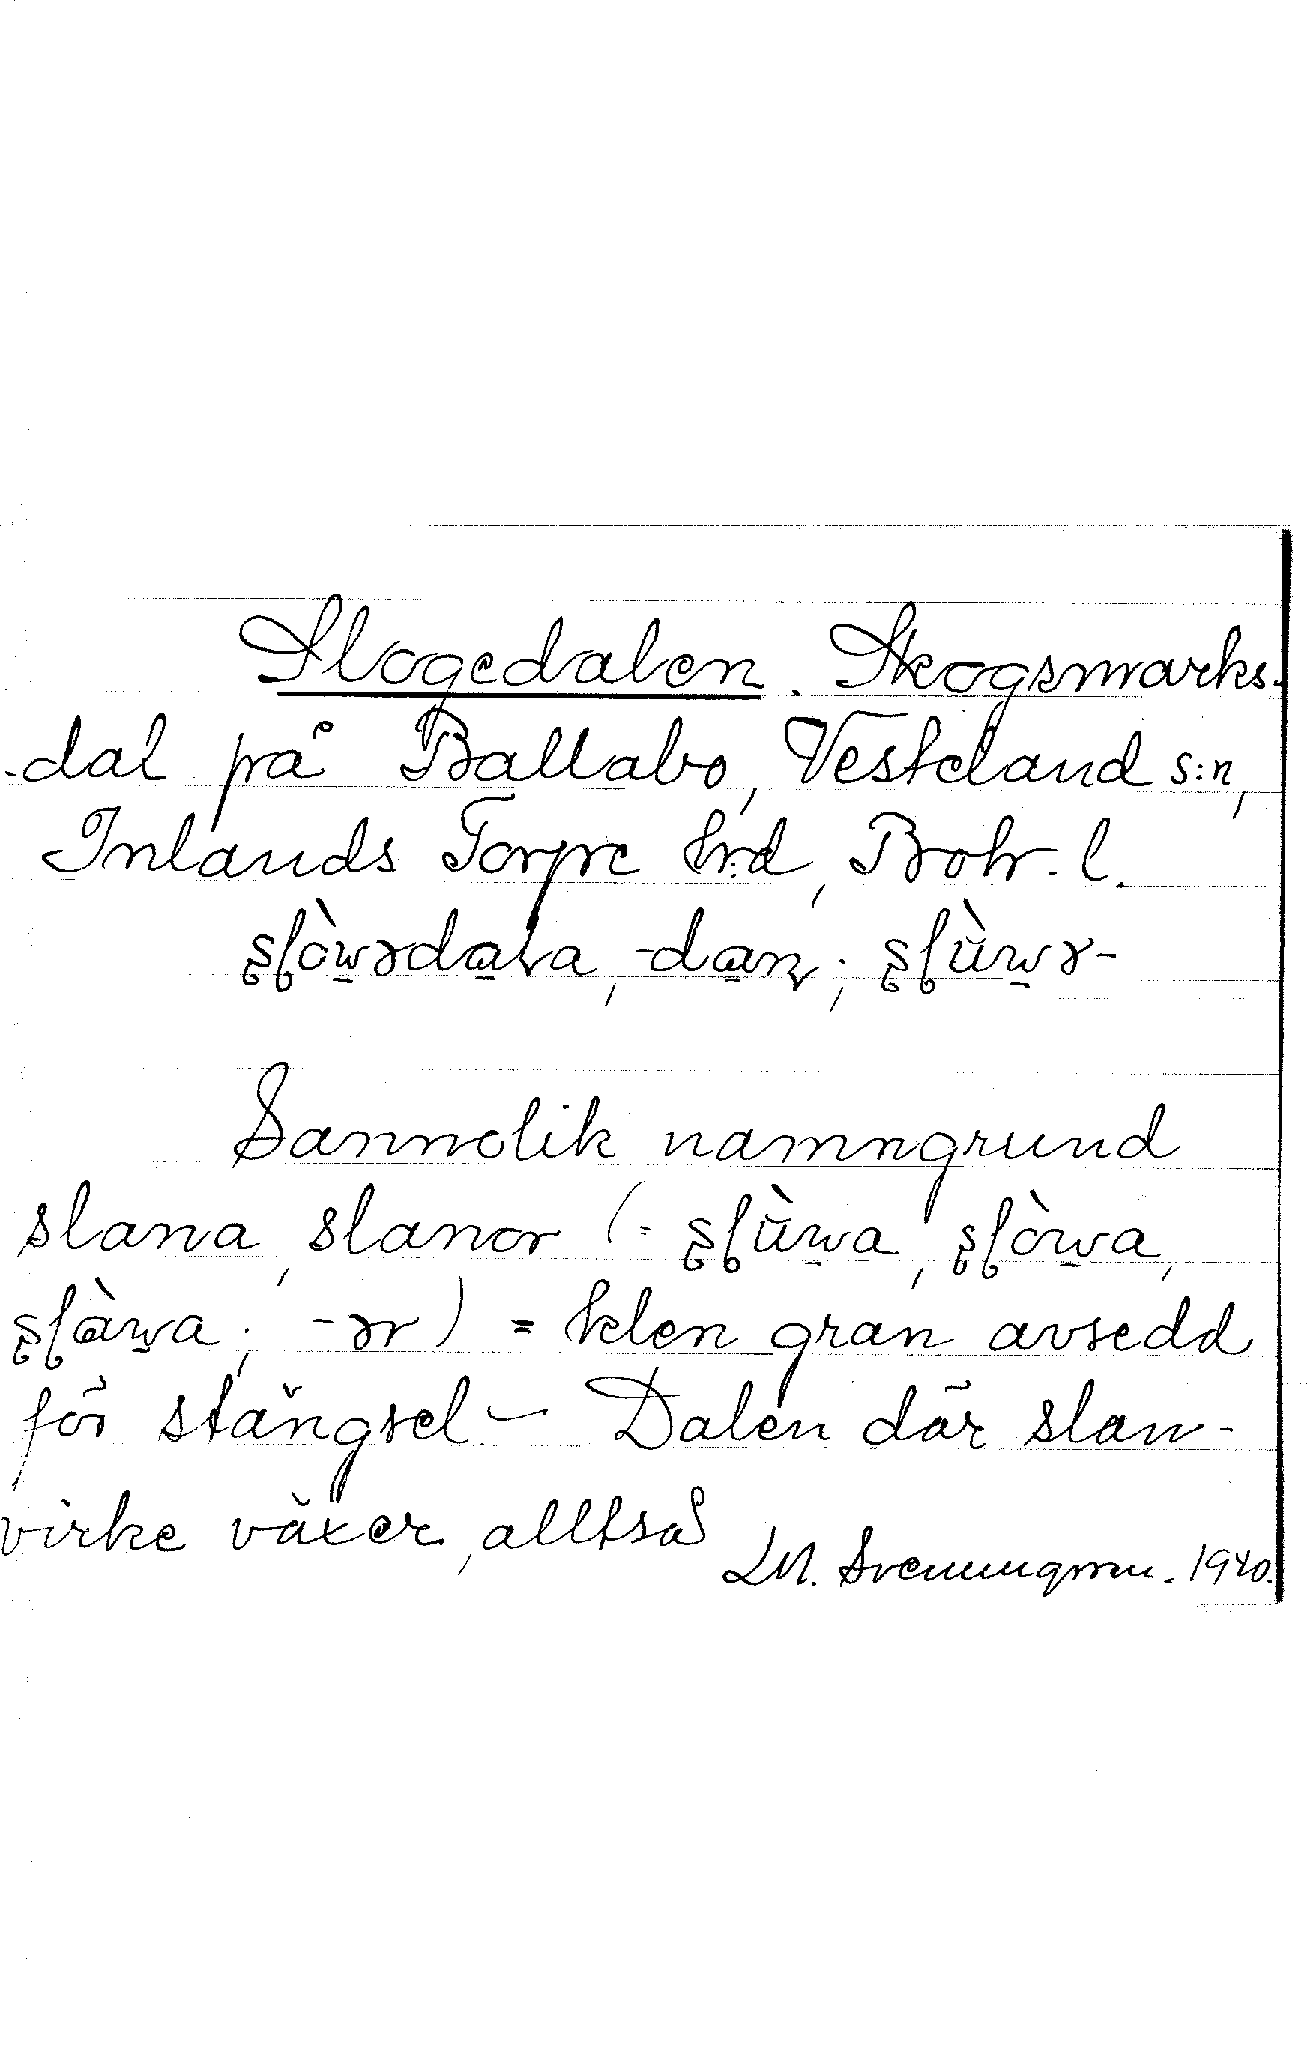 Slogedalen. Skogsmarks-
-dal på Ballabo, Vesteland s:n,
Inlands Torpe h:d, Boh. l.
ʂʃòwədaɽa, -daɳ; ʂʃùwə-
Sannolik namngrund
slana, slanor (= ʂʃùwa, ʂʃòwa,
ʂʃàwa; -ər) = klen gran avsedd
för stängsel – Dalen där slan-
virke växer, alltså
LM. Svenungsson. 1940.